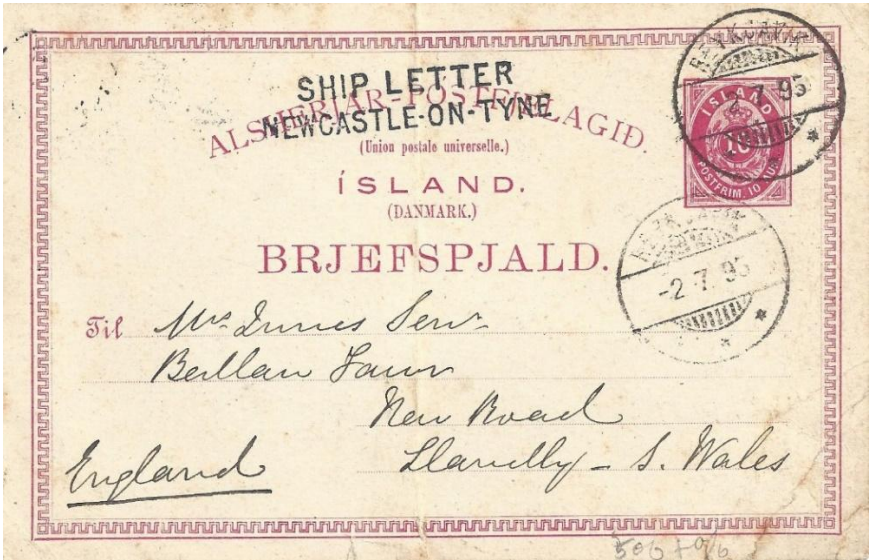 SHIP LETTER
NEWCASTLE-ON-TYNE
ALSHERJAR-POSTFJELAGIÐ.
(Union postale universelle.)
ÍSLAND.
(DANMARK.)
BRJEFSPJALD.
REYKJAVIK
2.7.95
ÍSLAND
10
POSTFRIM. 10 AUR.
REYKJAVIK
-2.7.95
Til Mrs Innes Senr
New Road
Llanelly - S. Wales
England